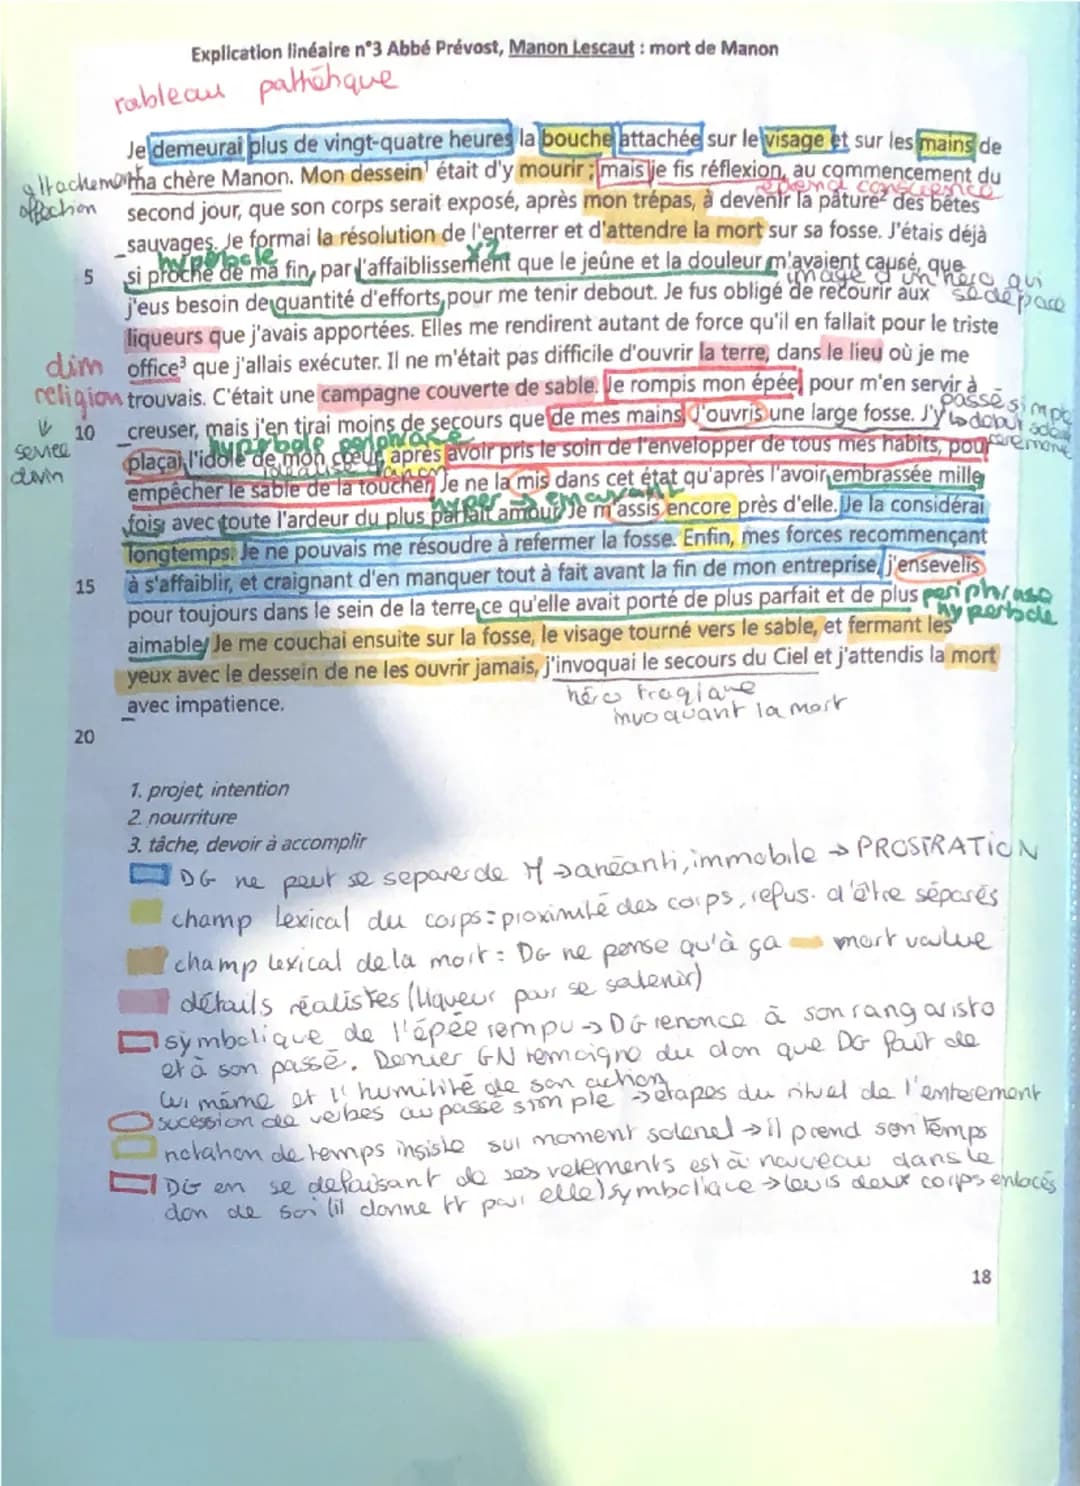 Explication linéaire n°3 Abbé Prévost, Manon Lescaut : mort de Manon
tableau pathétique
Je demeurai plus de vingt-quatre heures la bouche attachée sur le visage et sur les mains de
attachement
affection
ma chère Manon. Mon dessein¹ était d'y mourir ; mais je fis réflexion, au commencement du
prend conscience
second jour, que son corps serait exposé, après mon trépas, à devenir la pâture² des bêtes
sauvages. Je formai la résolution de l'enterrer et d'attendre la mort sur sa fosse. J'étais déjà
hyperbole x2
5 si proche de ma fin, par l'affaiblissement que le jeûne et la douleur m'avaient causé, que
image d'un héro qui
se dépace
j'eus besoin de quantité d'efforts pour me tenir debout. Je fus obligé de recourir aux
liqueurs que j'avais apportées. Elles me rendirent autant de force qu'il en fallait pour le triste
dim
religion
↓
service
divin
office³ que j'allais exécuter. Il ne m'était pas difficile d'ouvrir la terre, dans le lieu où je me
trouvais. C'était une campagne couverte de sable. Je rompis mon épée, pour m'en servir à
passé simple
↳ début
ceremonie
10 creuser, mais j'en tirai moins de secours que de mes mains. J'ouvris une large fosse. J'y
hyperbole periphrase
plaçai l'idole de mon cœur, après avoir pris le soin de l'envelopper de tous mes habits, pour
empêcher le sable de la toucher. Je ne la mis dans cet état qu'après l'avoir embrassée mille
hyper → emouvant
fois, avec toute l'ardeur du plus parfait amour. Je m'assis encore près d'elle. Je la considérai
longtemps. Je ne pouvais me résoudre à refermer la fosse. Enfin, mes forces recommençant
15 à s'affaiblir, et craignant d'en manquer tout à fait avant la fin de mon entreprise, j'ensevelis
pour toujours dans le sein de la terre ce qu'elle avait porté de plus parfait et de plus
periphrase
hyperbole
aimable. Je me couchai ensuite sur la fosse, le visage tourné vers le sable, et fermant les
yeux avec le dessein de ne les ouvrir jamais, j'invoquai le secours du Ciel et j'attendis la mort
avec impatience.
héro tragique
invoquant la mort
20
1. projet, intention
2. nourriture
3. tâche, devoir à accomplir
DG ne peut se separer de M → anéanti, immobile → PROSTRATION
champ lexical du corps : proximité des corps, refus d'être séparés
champ lexical de la mort : DG ne pense qu'à ça mort value
détails réalistes (liqueur pour se satenir)
symbolique de l'épée rompu → DG renonce à son rang aristo
et à son passé. Dernier GN témoigne du don que DG fait de
lui même et l'humilité de son action
sucession de verbes au passé simple → etapes du rituel de l'enterement
notation de temps insiste sur moment solenel → il prend son temps
DG en se defaisant de ses vetements est à nouveau dans le
don de soi (il donne tt pour elle) symbolique → leurs deux corps enlacés
18